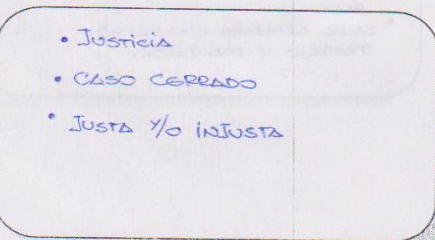 • JUSTICIA
• CASO CERRADO
• JUSTA Y/O INJUSTA